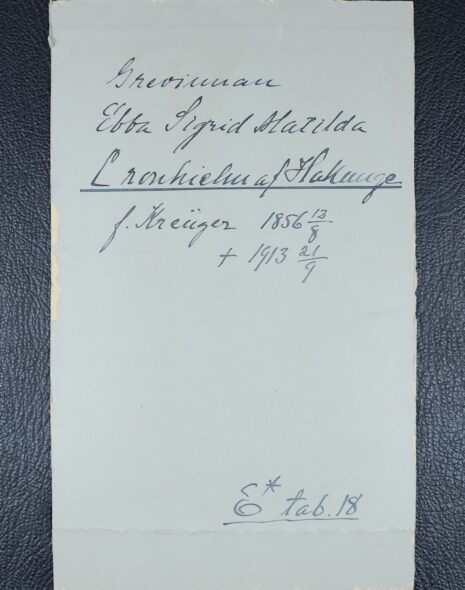 Grevinnan
Ebba Sigrid Matilda
Cronhielm af Hakunge
f. Kreüger 1856 13/8
+ 1913 21/9
E* tab. 18